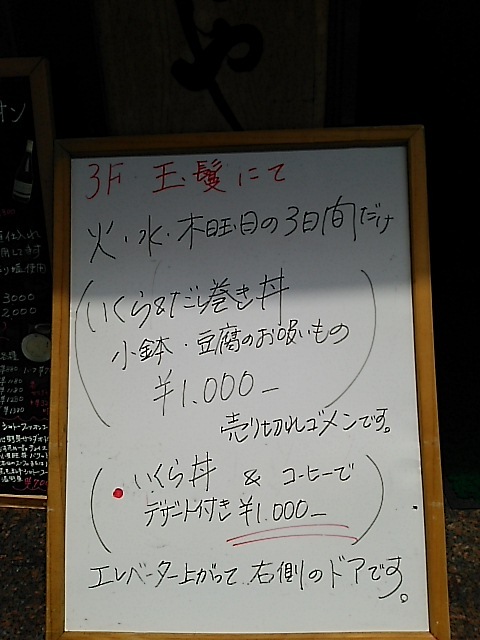 や
3F 玉鬘にて
火・水・木曜日の3日間だけ
いくら&だし巻き丼
小鉢・豆腐のお吸いもの
¥1.000-
売り切れゴメンです。
いくら丼 & コーヒーで
デザート付き ¥1.000-
エレベーター上がって 右側のドアです。
オン
3000
2,000